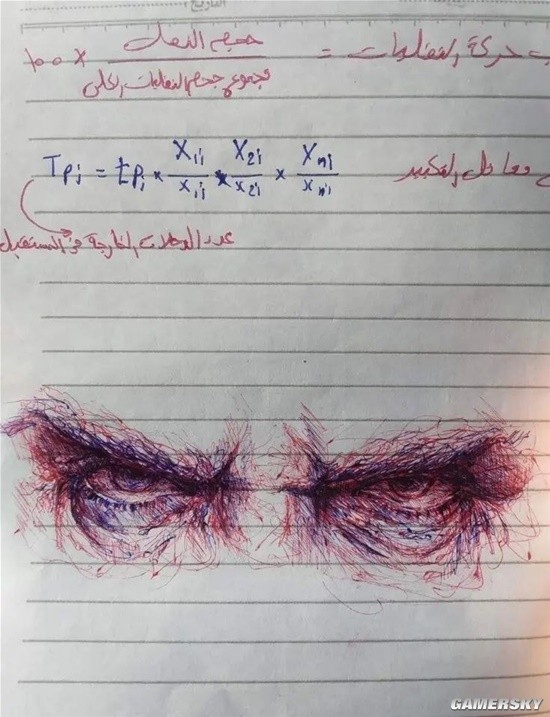 التاريخ
حركة النقليات = حجم النقل / مجموع حجم النقليات الكلي × 100
معامل التكبير Tpj = tpj × X1j/x1j × X2j/x2j × Xnj/xnj
عدد الرحلات الخارجة في المستقبل
GAMERSKY